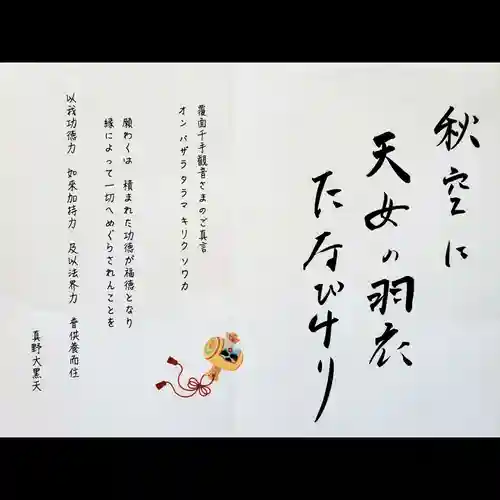 秋空に
天女の羽衣
たなびけり
覆面千手観音さまのご真言
オン バザラ タラマ キリク ソワカ
願わくは 積まれた功徳が福徳となり
縁によって一切へめぐらされんことを
以我功徳力 如来加持力 及以法界力 普供養而住
真野大黒天